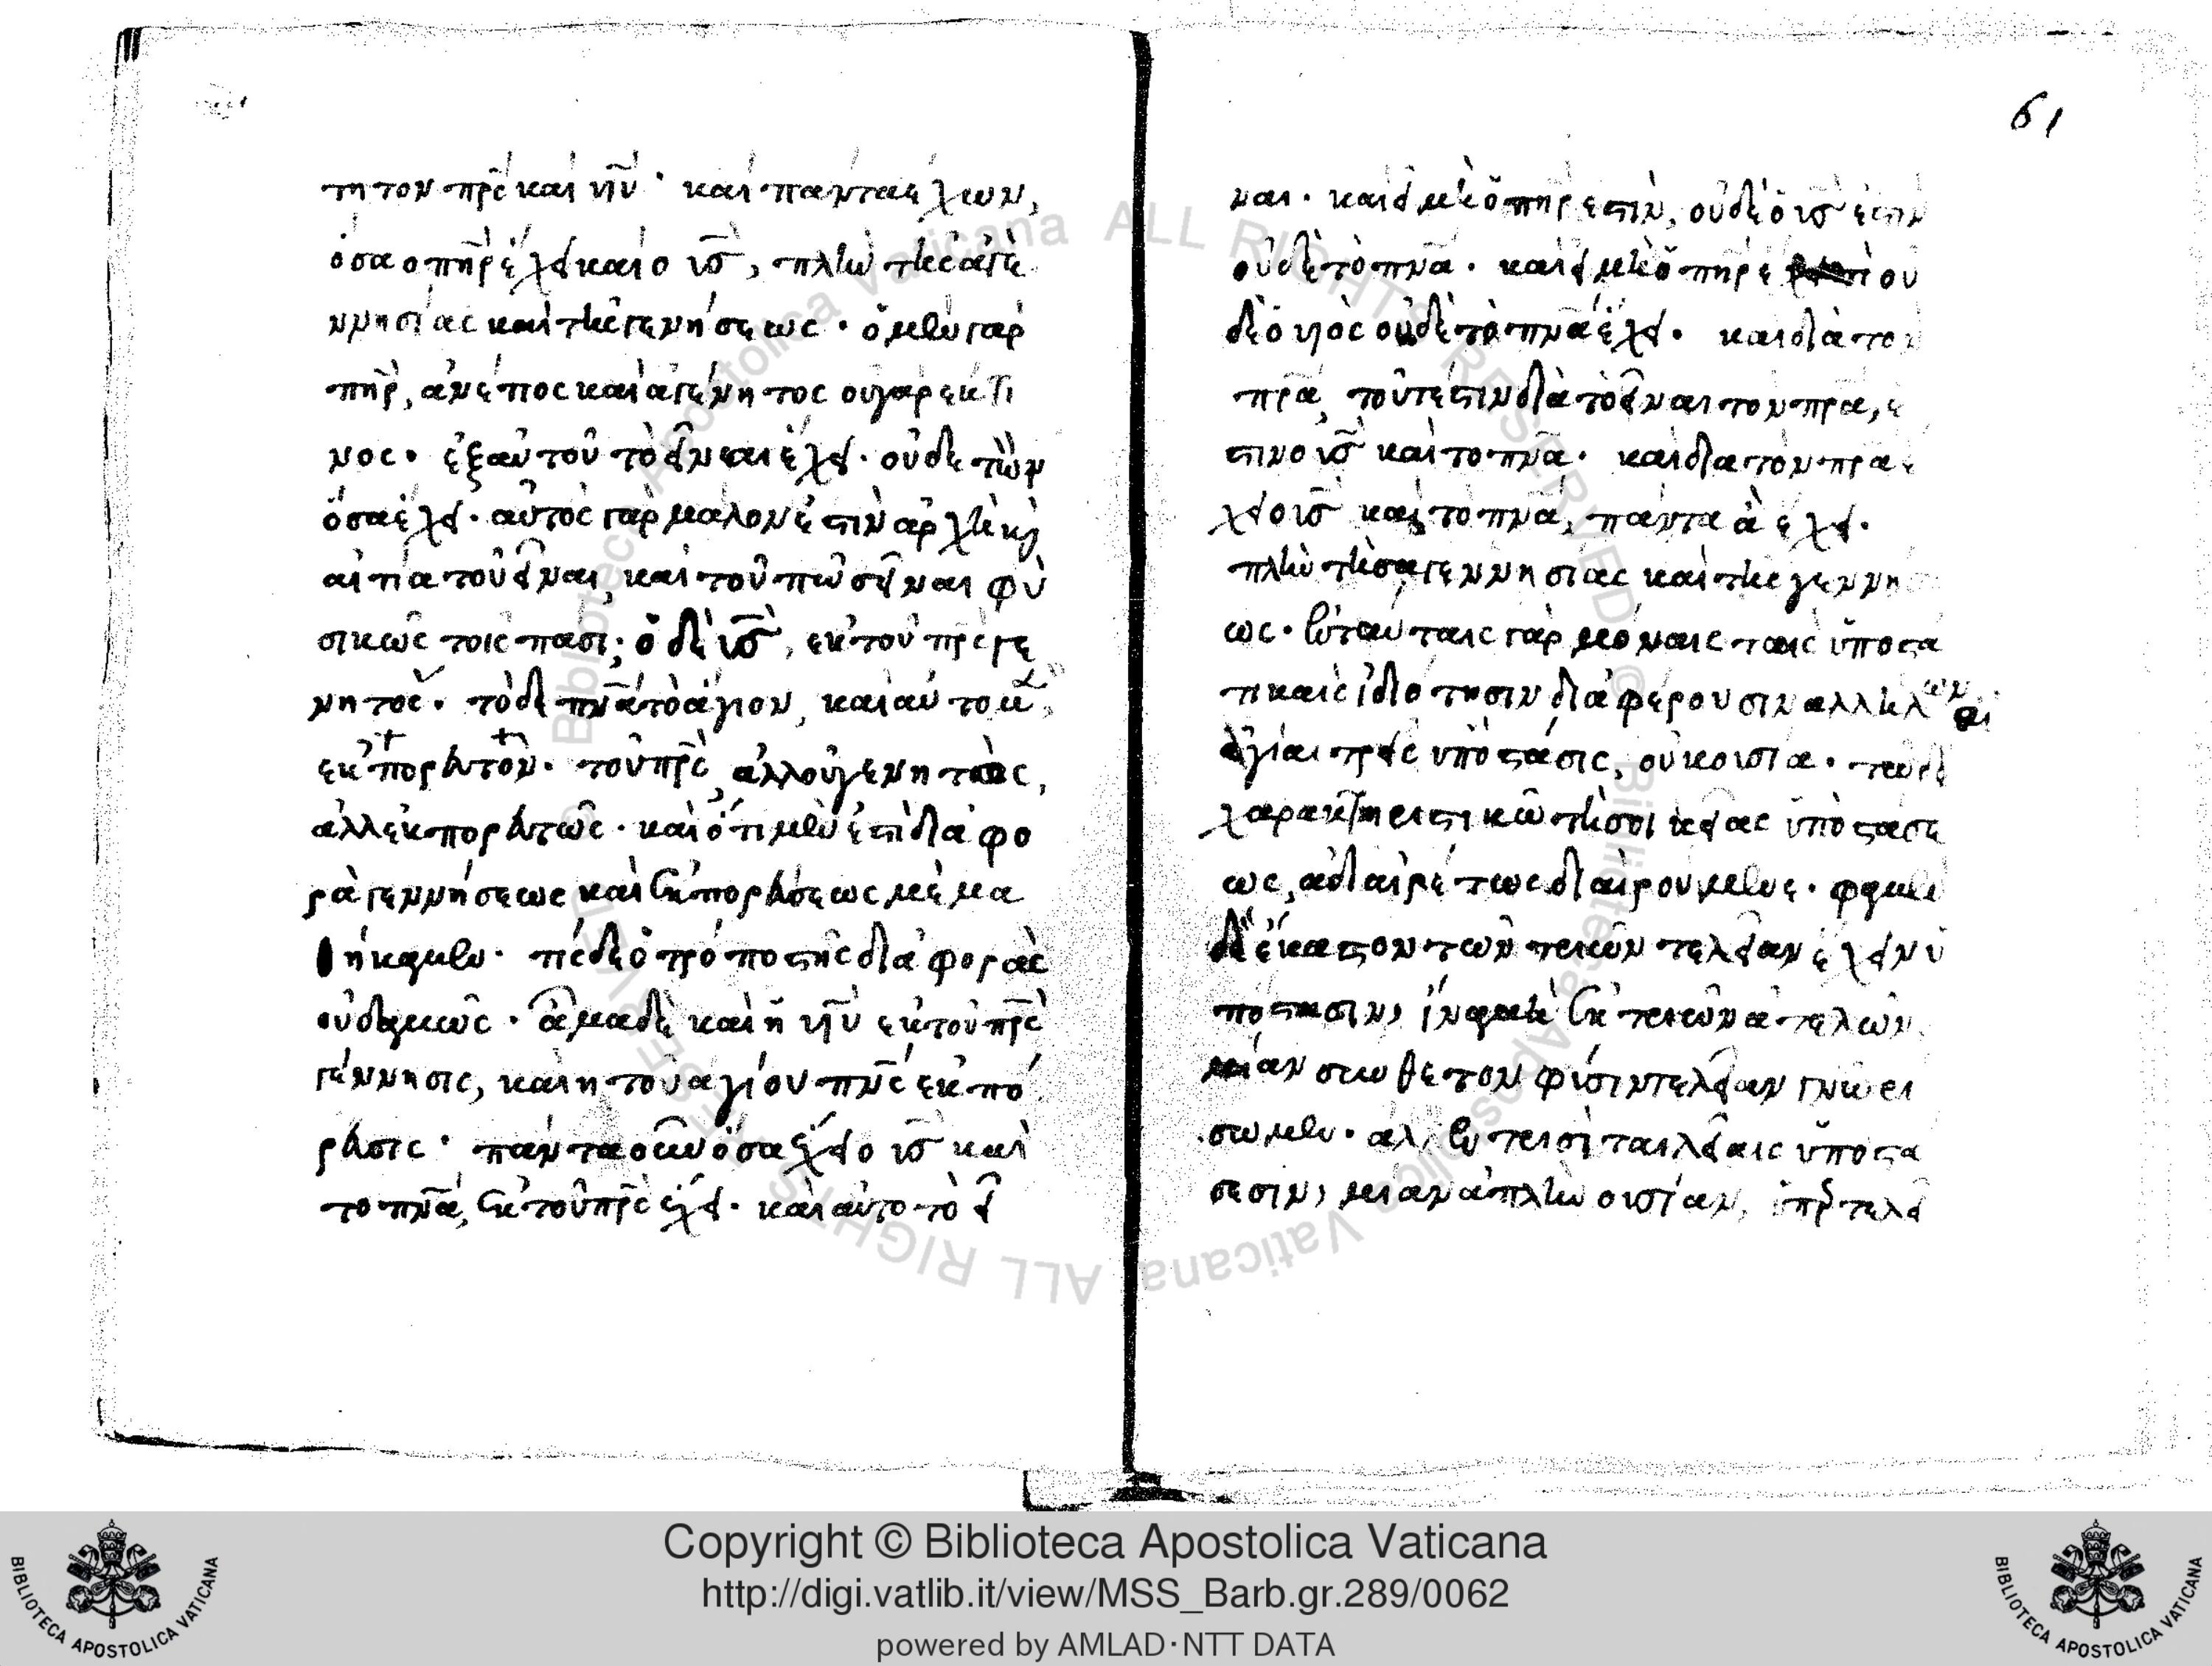 τη τον πρς και υιυ · και πάντα ἔχων,
ὅσα ο πηρ ἔχει και ο υς, πλην της ἀγε
ννησίας και της γεννήσεως · ὁ μεν γαρ
πηρ, ἀνέτιος και ἀγέννητος ου γαρ εκ τι
νος · ἐξ αυτοῦ τὸ εἶναι ἔχει · οὐδε τῶν
ὅσα ἔχει · αὐτὸς γὰρ μαλον ἐστὶν ἀρχὴ κ(αὶ)
αἰτία τοῦ εἶναι, και τοῦ πῶς εἶναι φυ
σικῶς τοις πασι; ὁ δὲ υς, εκ του πρς γε
νητός · τὸ δε πνα τὸ ἅγιον, και αυτο
ἐκπορευτον · τοῦ πρς, ἀλλ ου γενητως,
ἀλλ ἐκπορευτῶς · και ὅτι μεν ἐστι διαφο
ρὰ γεννήσεως και ἐκπορεύσεως μεμα
θήκαμεν · τίς δε ὁ τρόπος της διαφορᾶς
οὐδαμῶς · ἅμα δὲ και ἡ υιυ ἐκ τοῦ πρς
γέννησις, και η του αγίου πνς ἐκπό
ρευσις · πάντα οὖν ὅσα ἔχει ο υς και
το πνα, ἐκ τοῦ πρς ἔχει · και αὐτο τὸ εἶ
61
ναι · και εἰ μὴ ὁ πηρ ἐστιν, οὐδε ὁ υς ἐστιν
οὐδὲ τὸ πνα · και εἰ μὴ ὁ πηρ ἔ τι ου
δε ὁ υιὸς ουδὲ τὸ πνα ἔχει · και διὰ τον
πρα, τοῦτέστιν διὰ τὸ εἶναι τον πρα, ἔ
στιν ο υς και το πνα · και δια τον πρα ἔ
χει ο υς και το πνα, πάντα ἃ ἔχει ·
πλην τῆς ἀγεννησίας και της γεννησε
ως · ἐν ταύταις γαρ μόναις ταις ὑποστα
τικαῖς ἰδιότησιν διαφέρουσιν αλλήλων αι
ἁγίαι τρεῖς ὑποστάσις, ουκ ουσία · τω δε
χαρακτηριστικῶ τῆς οἰκείας ὑποστάσε
ως, ἀδιαιρέτως διαιρουμενε · φαμεν
δὲ ἕκαστον των τριῶν τελείαν ἔχειν υ
πόστασιν, ἵνα μὴ ἐκ τριῶν ἀτελῶν
μίαν συνθετον φύσιν τελείαν γνωρι
σωμεν · αλ, ἐν τρισὶ ταιλείαις ὑποστα
σεσιν, μίαν απλην ουσίαν, ὑπερτελῆ
Copyright © Biblioteca Apostolica Vaticana
http://digi.vatlib.it/view/MSS_Barb.gr.289/0062
powered by AMLAD·NTT DATA
BIBLIOTECA APOSTOLICA VATICANA
BIBLIOTECA APOSTOLICA VATICANA